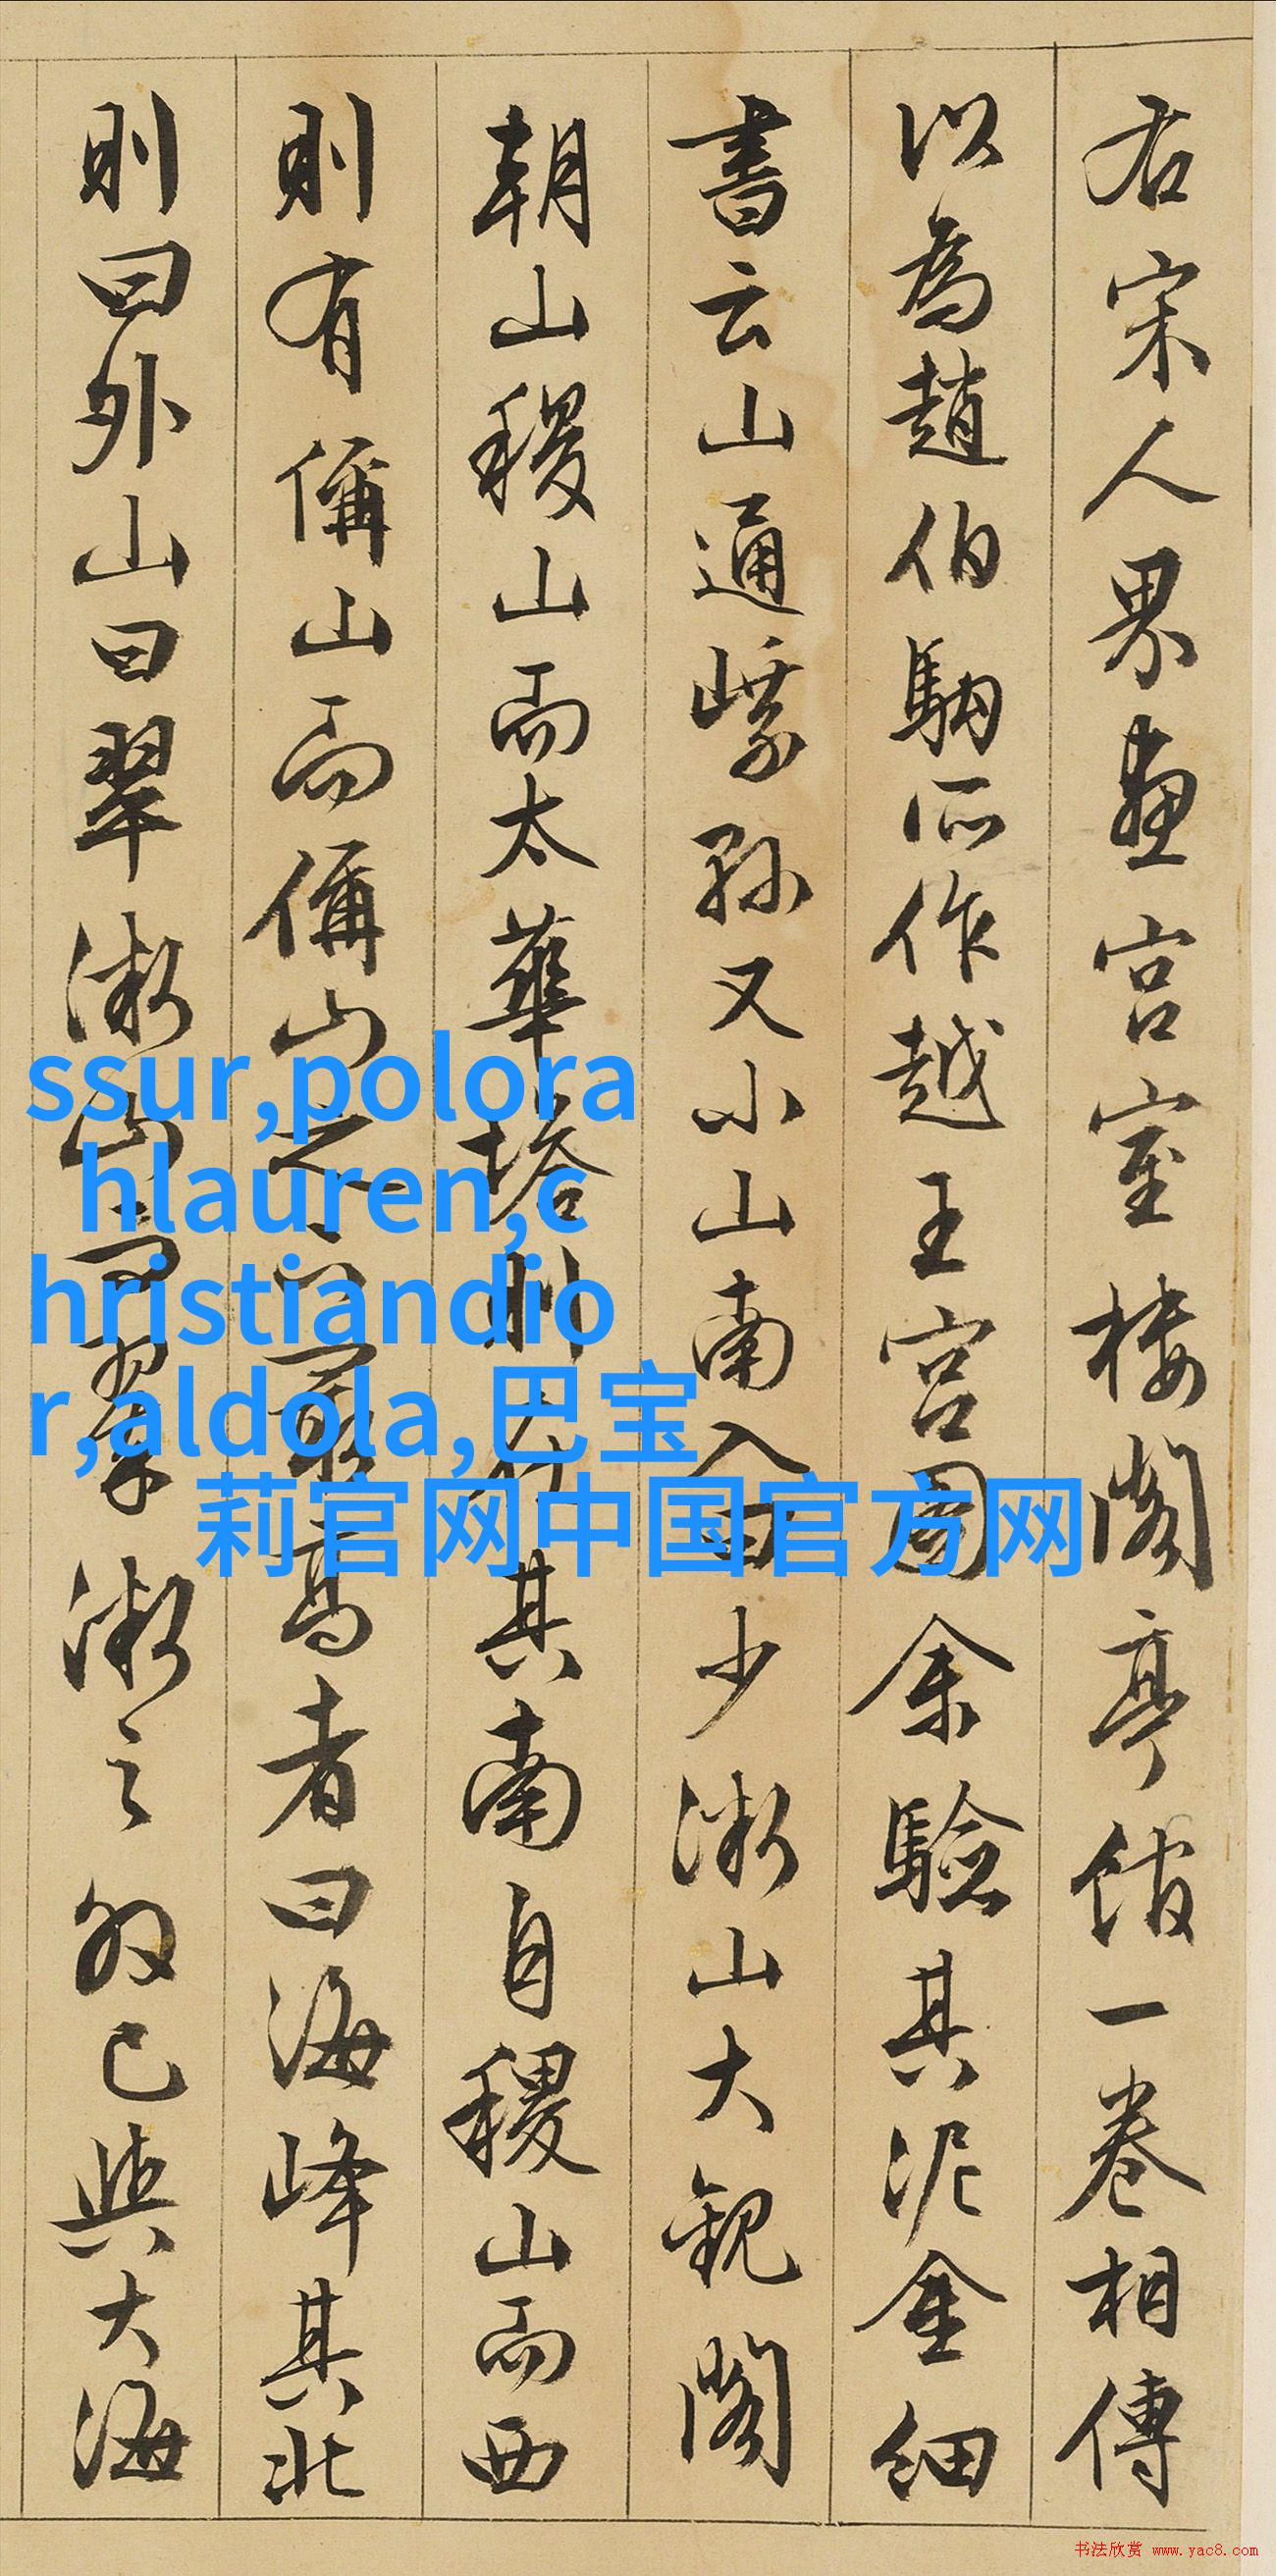 右宋人界畫宮室樓閣亭館一卷相傳
以為趙伯駒所作越王宮圖余驗其泥金細
書云山通又小山南入曰少微山大觀閣
朝山稷山而太華塔則在其南自稷山而西
則有偁山而偁山之最高者曰海峰其北
則曰外山曰翠微山翠微之已與大海
ssur,polora
hlauren,c
hristiandio
r,aldola,巴宝
莉官网中国官方网
书法欣赏 www.yac8.com